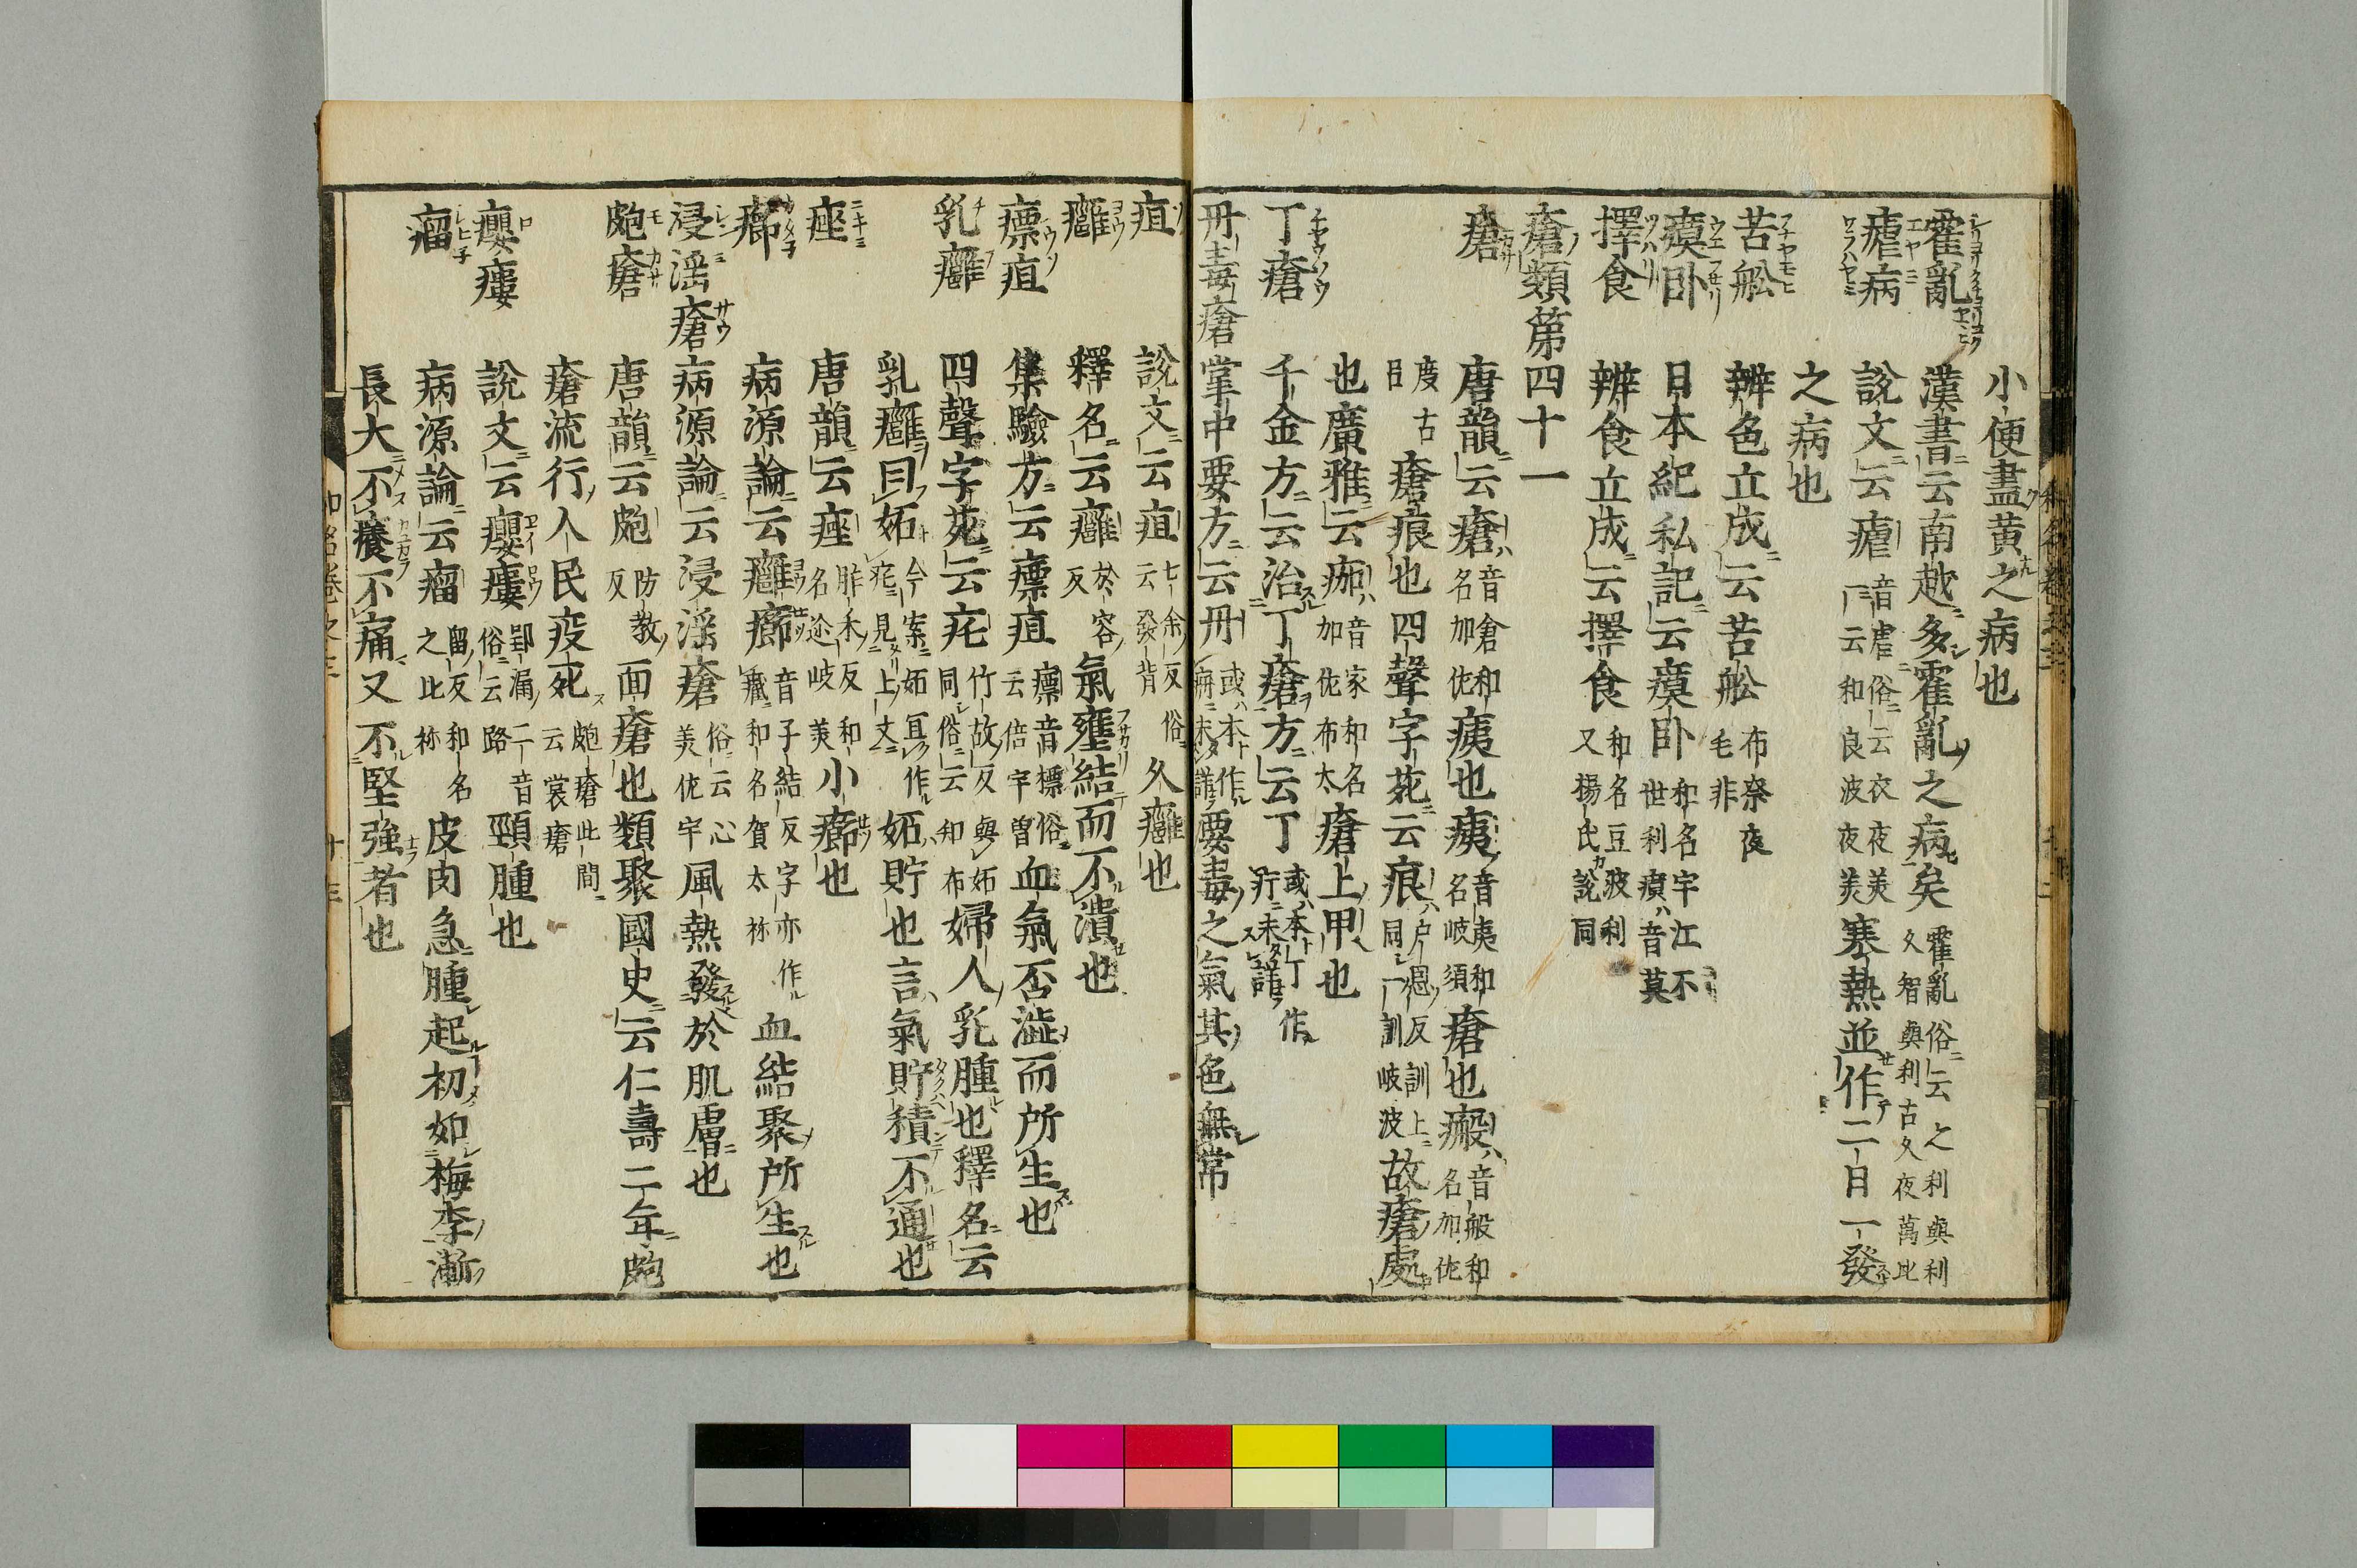 小便盡黄之病也
霍亂 漢書云南越多霍亂之病矣 霍亂俗云之利與利久智與利古久夜萬比
瘧病 說文云瘧 音虐俗云衣夜美一云和良波夜美 寒熱並作二日一發
之病也
苦舩 辨色立成云苦舩 布奈夜毛非
瘼卧 日本紀私記云瘼卧 和名宇江不世利瘼音莫
擇食 辨食立成云擇食 和名豆波利又楊氏説同
瘡類第四十一
瘡 唐韻云瘡 音倉和名加佐 痍也痍 音夷和名岐須 瘡也瘢 音般和名加佐
度古目 瘡痕也四聲字苑云痕 戸恩反訓上同一訓岐波 故瘡處
也廣雅云痂 音家和名加佐布太 瘡上甲也
丁瘡 千金方云治丁瘡方云丁 或本丁作疔未詳
丹毒瘡 掌中要方云丹 或本作㾱未詳 要毒之氣其色無常
疽 說文云疽 七余反俗云發背 久癰也
癰 釋名云癰 於容反 氣壅結而不潰也
瘭疽 集驗方云瘭疽 瘭音標俗云倍宇曽 血氣否澁而所生也
乳癰 四聲字苑云㾏 竹故反與妬同俗云知布 婦人乳腫也釋名云
乳癰曰妬 今案妬冝作㾏見上文 妬貯也言氣貯積不通也
痤 唐韻云痤 昨禾反和名迩岐美 小癤也
癤 病源論云癰癤 音子結反字亦作㘉和名賀太祢 血結聚所生也
浸淫瘡 病源論云浸淫瘡 俗云心美佐宇 風熱發於肌膚也
皰瘡 唐韻云皰 防教反 面瘡也類聚國史云仁壽二年皰
瘡流行人民疫死 皰瘡此間云裳瘡
癭瘻 說文云癭瘻 郢漏二音俗云路 頸腫也
瘤 病源論云瘤 留反和名之比祢 皮肉急腫起初如梅李漸
長大不癢不痛又不堅強者也
和名卷之三
廿三